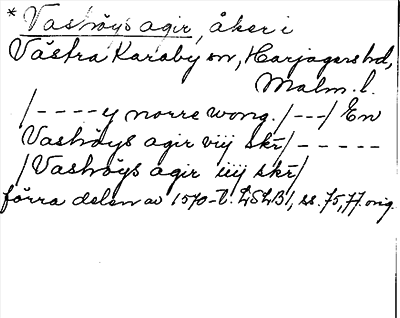 * Vashöys agir, åker i
Västra Karaby sn, Harjagers hd,
Malm. l.
/----y norre wong. /---/ En
Vashöys agir viij skr/-----
/Vashöys agir iiij skr/
förra delen av 1570-t. LSLB1, ss. 75, 77. orig.